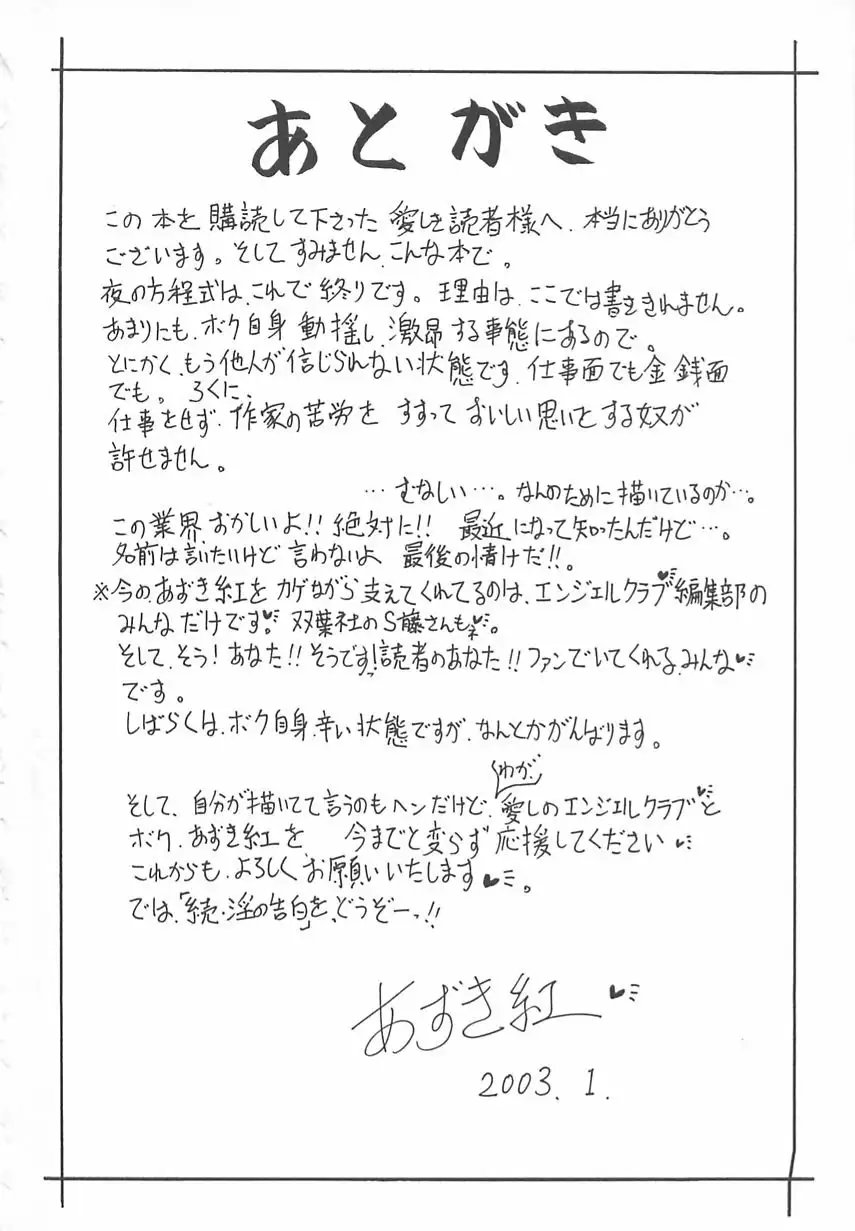 あとがき
この本を購読して下さった愛しき読者様へ、本当にありがとう
ございます。そしてすみません、こんな本で。
夜の方程式は、これで終りです。理由は、ここでは書ききれません。
あまりにも、ボク自身動揺し、激昂する事態にあるので。
とにかく、もう他人が信じられない状態です、仕事面でも金銭面
でも。ろくに、
仕事をせず、作家の苦労をすすっておいしい思いをする奴が
許せません。
…むなしい…。なんのために描いているのか…。
この業界、おかしいよ!!絶対に!!最近になって知ったんだけど…。
名前は言いたいけど言わないよ 最後の情けだ!!。
※今の、あずき紅をカゲながら支えてくれてるのは、エンジェルクラブ♥編集部の
みんなだけです♥。双葉社のS藤さんもネ♥。
そして、そう!あなた!!そうです!読者のあなた!!ファンでいてくれる、みんな♥
です。
しばらくは、ボク自身、辛い状態ですが、なんとかがんばります。
わが、
そして、自分が描いてて言うのもヘンだけど、愛しのエンジェルクラブ♥と
ボク、あずき紅を 今までと変らず応援してください♥
これからも、よろしくお願いいたします♥。
では、「続・淫の告白」を、どうぞーっ!!
あずき紅♥
2003.1.